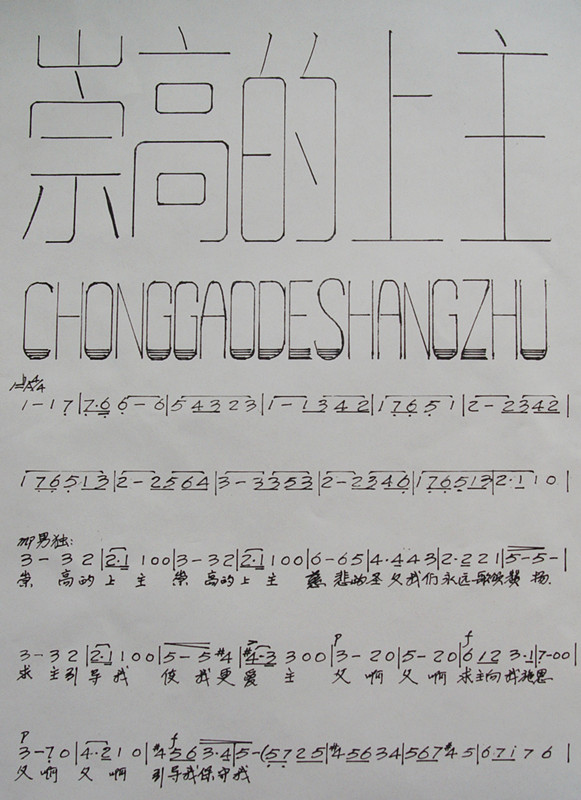 崇高的上主
CHONGGAODESHANGZHU
1 - 1 7 | 7·6 6 - 6 | 5 4 3 2 3 | 1 - 1 3 4 2 | 1 7 6 5 1 | 2 - 2 3 4 2 |
1 7 6 5 1 3 | 2 - 2 5 6 4 | 3 - 3 3 5 3 | 2 - 2 3 4 6 | 1 7 6 5 1 3 | 2·1 1 0 |
男独:
3 - 3 2 | 2·1 1 0 0 | 3 - 3 2 | 2·1 1 0 0 | 6 - 6 5 | 4·4 4 3 | 2·2 2 1 | 5 - 5 - |
崇 高的上 主 崇 高的上 主 慈 悲的圣父我们永远歌颂赞 扬.
3 - 3 2 | 2·1 1 0 0 | 5 - 5 #4 | #4·3 3 0 0 | p 3 - 2 0 | 5 - 2 0 | f 6 1 2 3·1 | 7 - 0 0 |
求 主引导我 使 我更爱 主 父 啊 父 啊 求主向我施恩
p 3 - 7 0 | 4·2 1 0 | #4 f 5 6 3·4 | 5 - (5 7 2 5 | #4 5 6 3 4 | 5 6 7 #4 5 | 6 7 i 7 6 |
父 啊 父 啊 引导我保守我